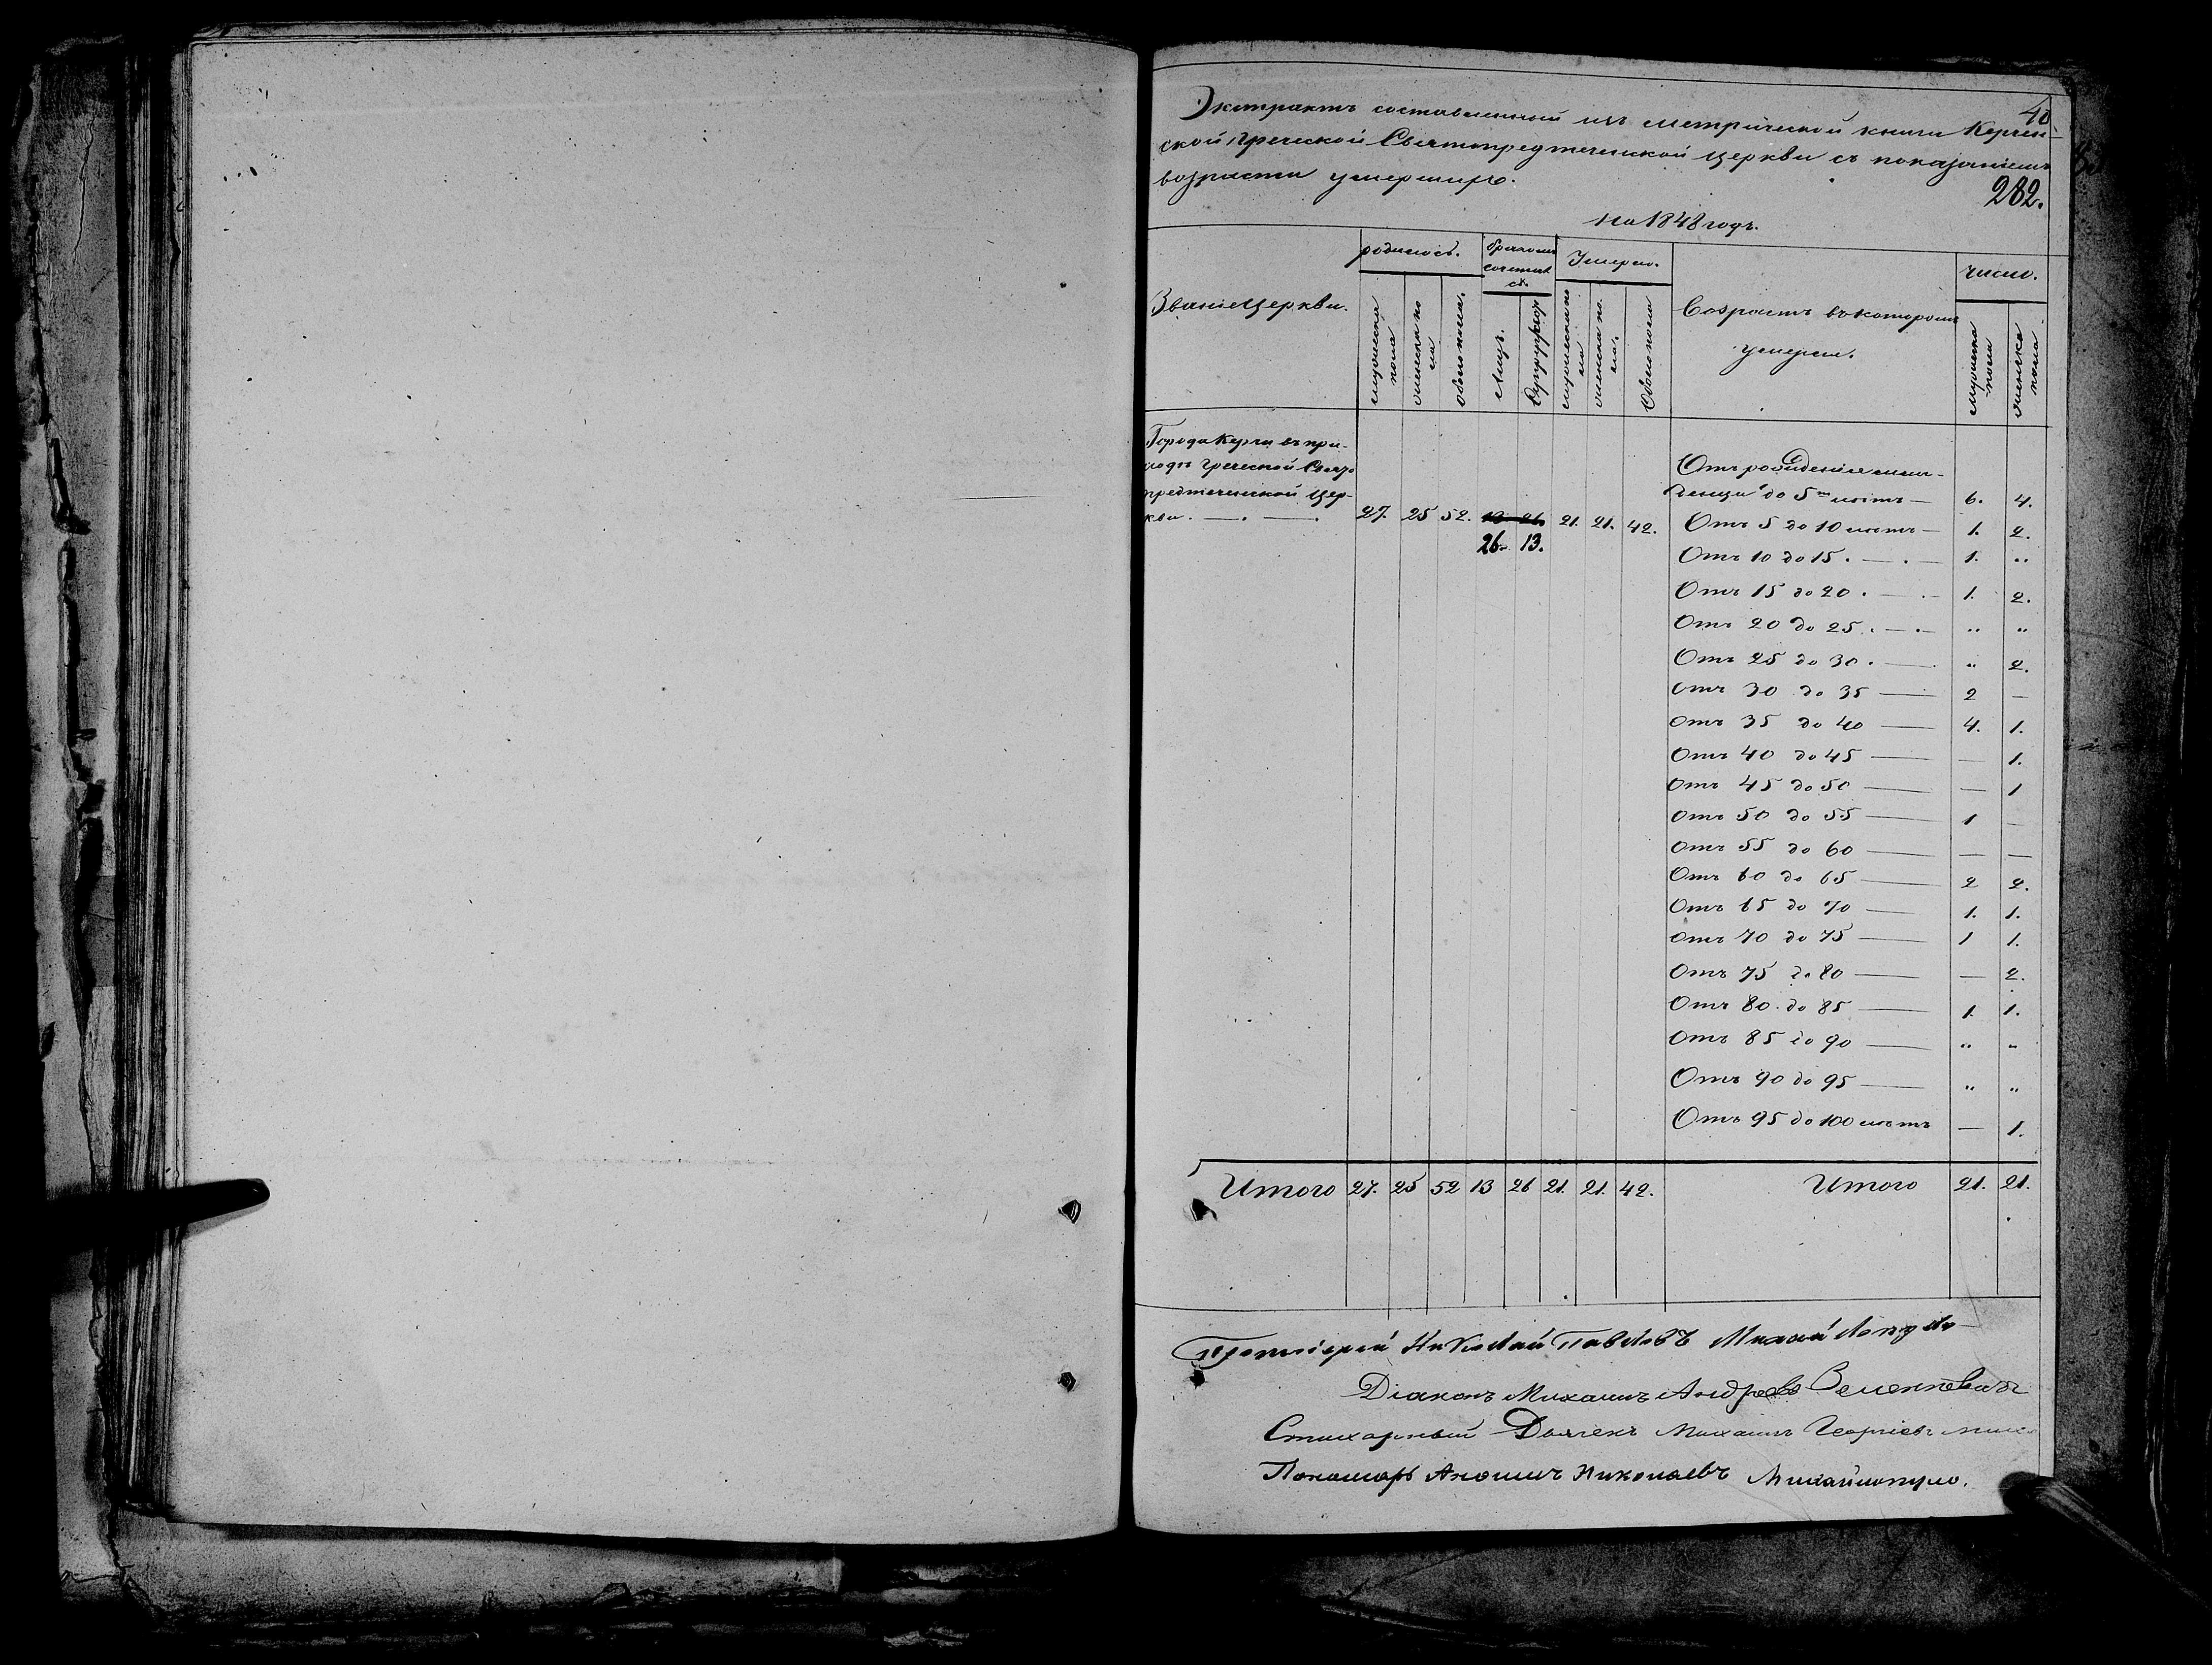 40
Экстрактъ составленный изъ метрической книги Керчен-
ской Греческой Святопредтеченской церкви съ показаніемъ
возраста умершихъ.
282.
на 1848 годъ.
Званіе Церкви.
родилось.
бракомъ сочетались
Умерло.
Возрастъ въ которомъ умерли.
число.
мужеска пола
женска пола
обоего пола.
Лицъ.
Супружествъ
мужеска пола
женска пола.
Обоего пола
мужеска пола
женска пола
Города Керчи въ при-
ходѣ Греческой Свято
предтеченской Цер-
кви. — . — . 27. 25 52. 13 26. 21. 21. 42.
26. 13.
Отъ рожденія мла-
денца до 5ти лѣтъ — 6. 4.
Отъ 5 до 10 лѣтъ — 1. 2.
Отъ 10 до 15 . — . — 1. „
Отъ 15 до 20 . — . — 1. 2.
Отъ 20 до 25 . — . — „ „
Отъ 25 до 30 . — „ 2.
Отъ 30 до 35 — 2 —
Отъ 35 до 40 — 4. 1.
Отъ 40 до 45 — — 1.
Отъ 45 до 50 — — 1
Отъ 50 до 55 — 1 —
Отъ 55 до 60 — — —
Отъ 60 до 65 — 2 2.
Отъ 65 до 70 — 1. 1.
Отъ 70 до 75 — 1 1.
Отъ 75 до 80 — — 2.
Отъ 80 до 85 — 1. 1.
Отъ 85 до 90 — „ „
Отъ 90 до 95 — „ „
Отъ 95 до 100 лѣтъ — 1.
Итого 27. 25 52 13 26 21. 21. 42. Итого 21. 21.
Протоіерей Николай Павловъ Михайлопуло
Діаконъ Михаилъ Андреевъ
Стихарный Дьячекъ Михаилъ Георгіевъ
Пономарь Николаевъ Михайлопуло.